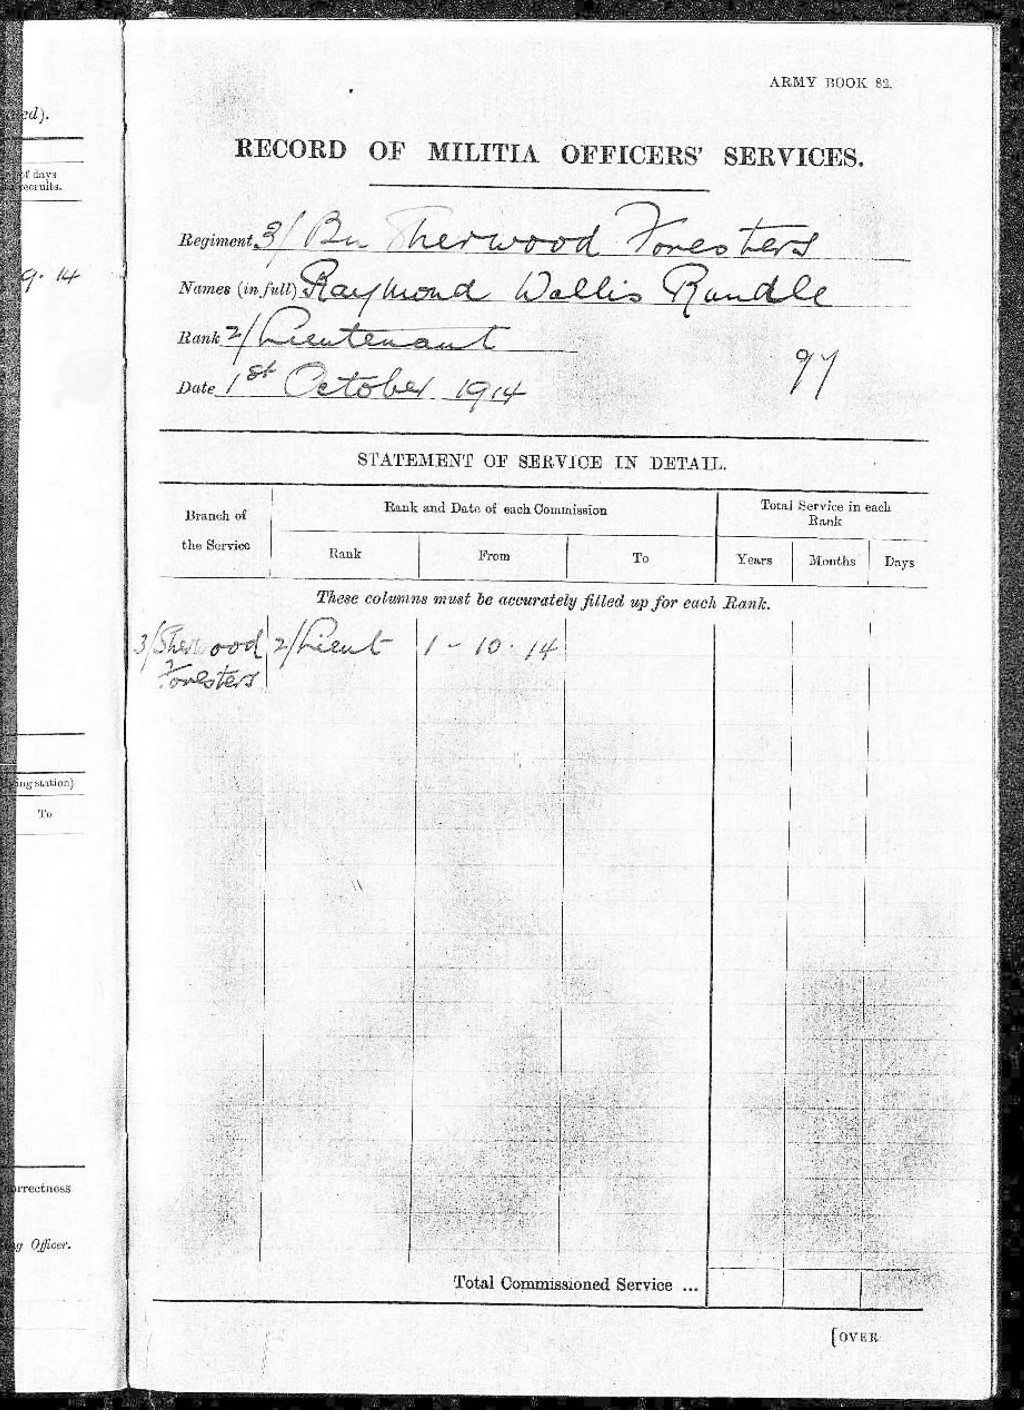 ed).
of days
recruits.
9. 14
ing station)
To
orrectness
g Officer.
ARMY BOOK 82.
RECORD OF MILITIA OFFICERS' SERVICES.
Regiment 3/ Bn Sherwood Foresters
Names (in full) Raymond Wallis Rundle
Rank 2/Lieutenant
Date 1st October 1914
97
STATEMENT OF SERVICE IN DETAIL.
Branch of the Service
Rank and Date of each Commission
Total Service in each Rank
Rank From To Years Months Days
These columns must be accurately filled up for each Rank.
3/Sherwood 2/Lieut 1 - 10 . 14
Foresters
Total Commissioned Service ...
[OVER